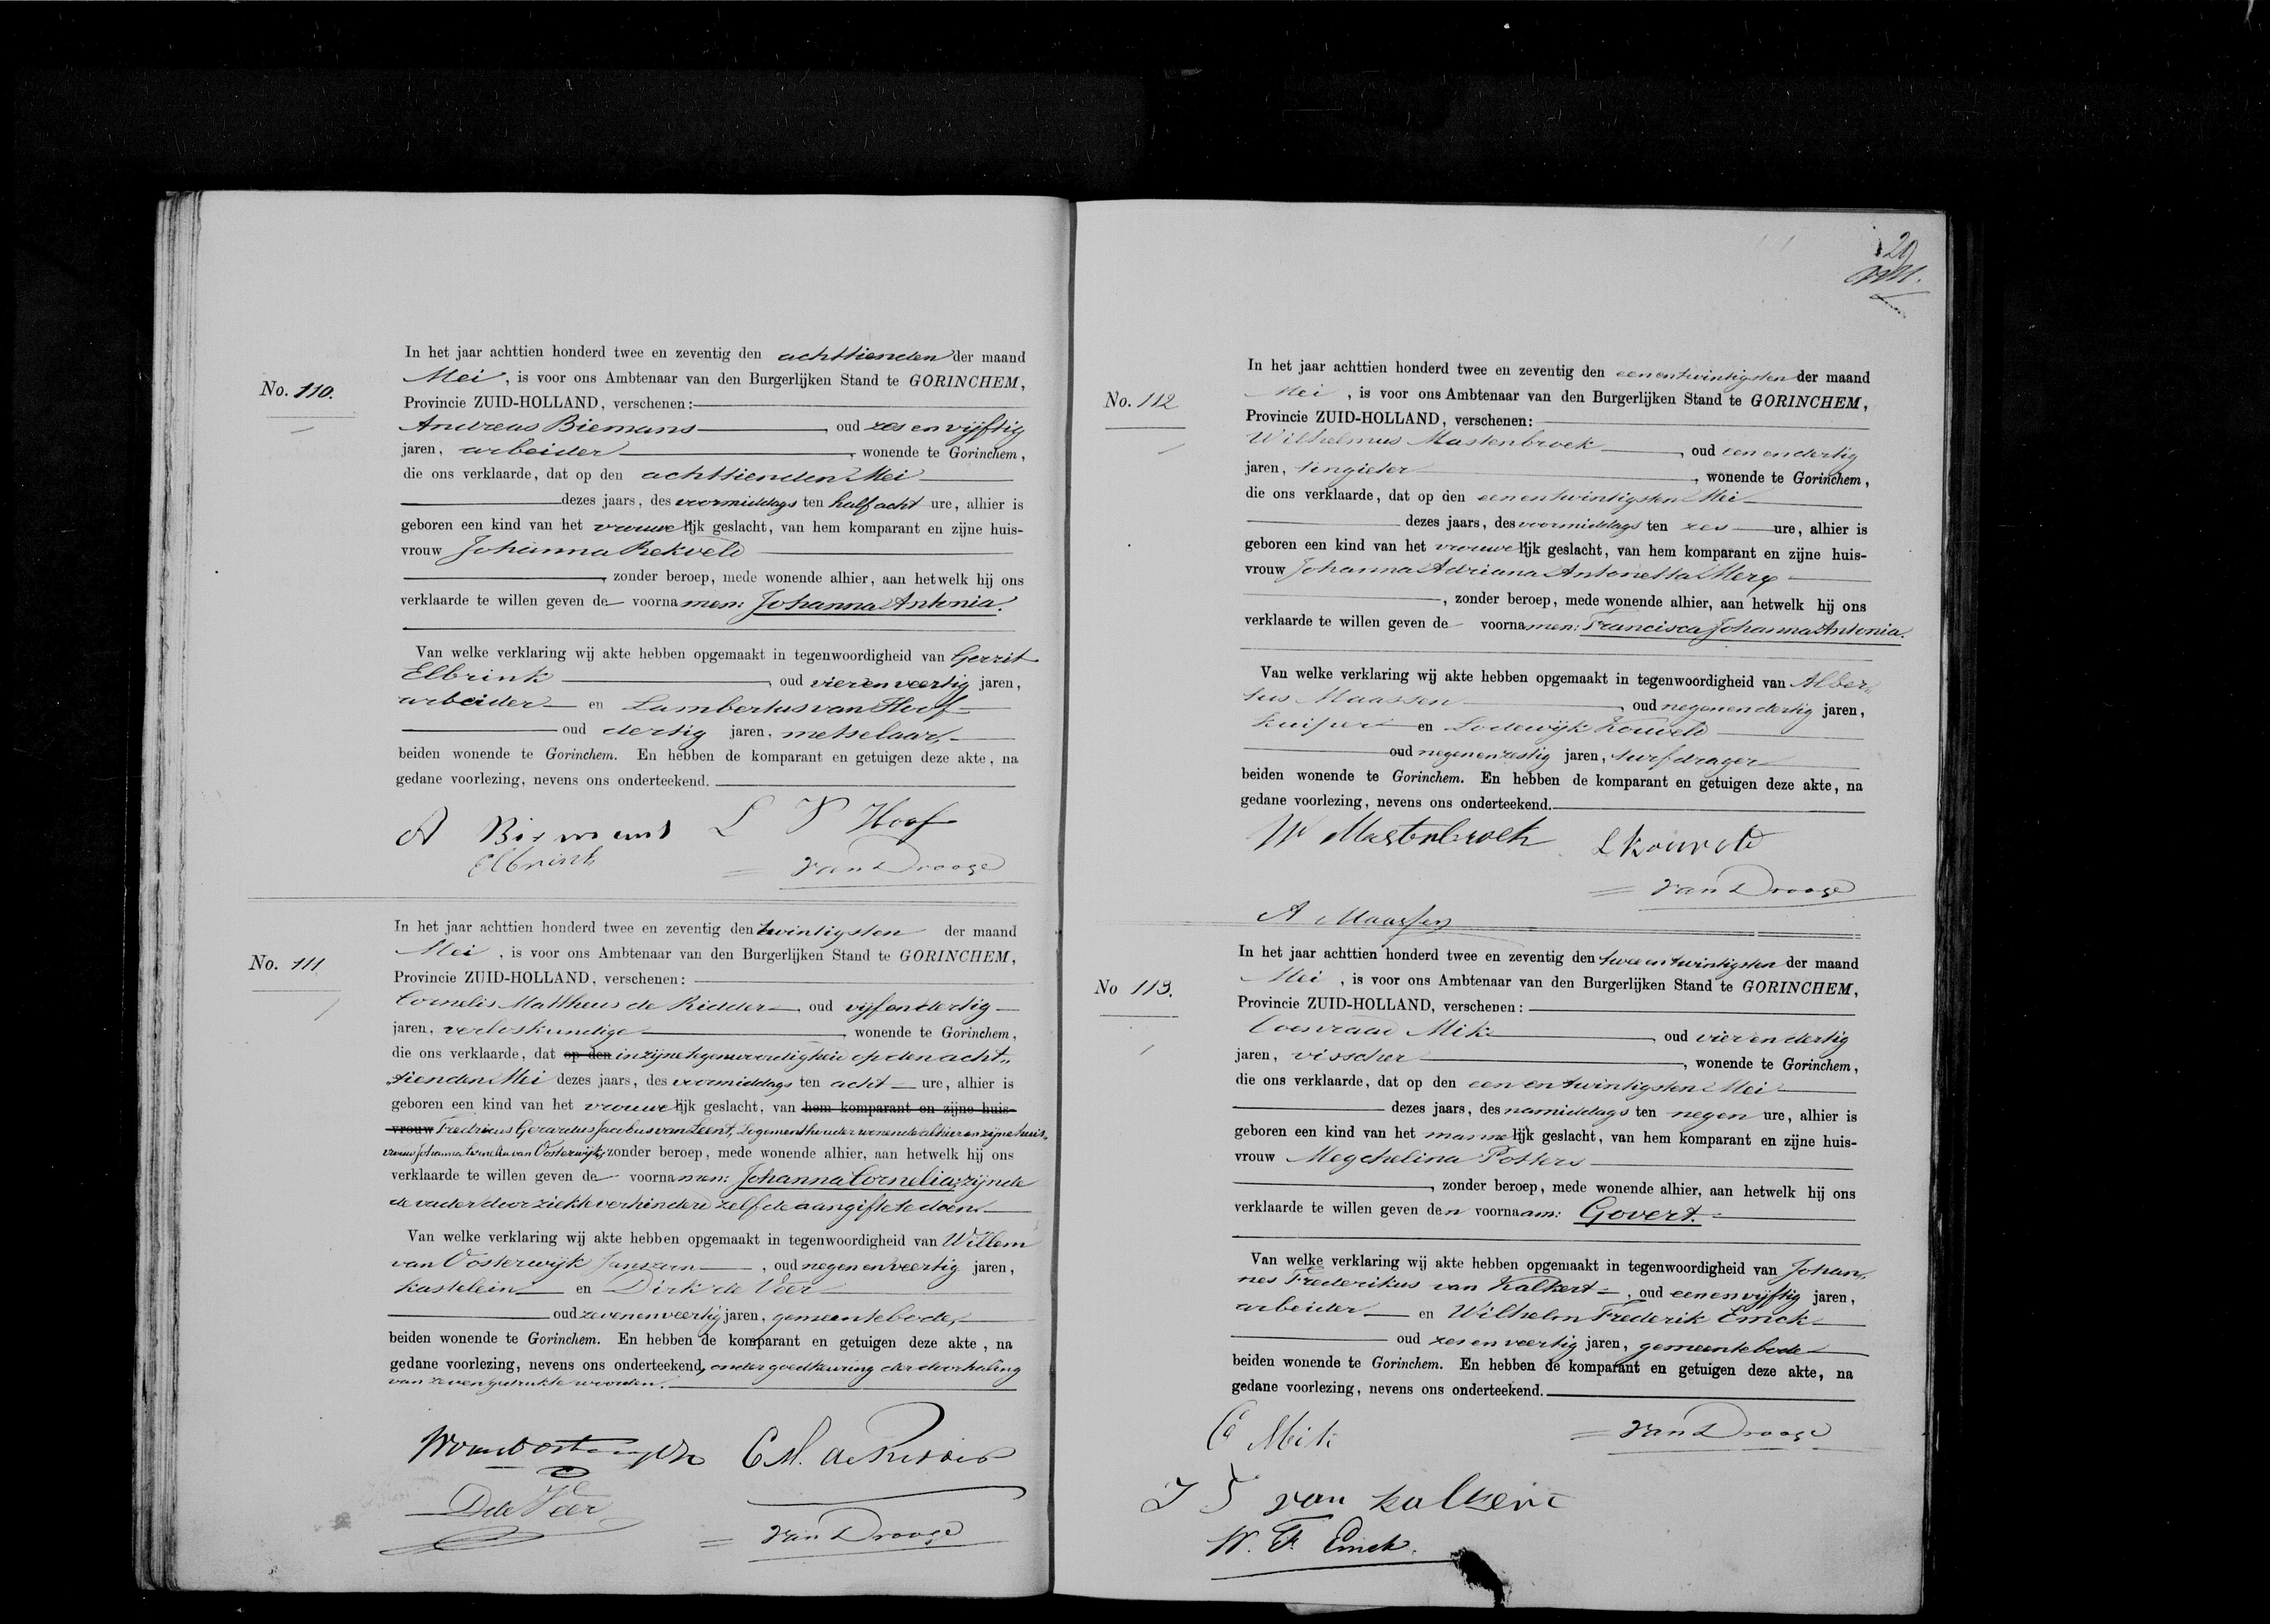 No. 110.
In het jaar achttien honderd twee en zeventig den achttienden der maand
Mei, is voor ons Ambtenaar van den Burgerlijken Stand te GORINCHEM,
Provincie ZUID-HOLLAND, verschenen:
Andreas Biemans, oud zes en vijftig
jaren, arbeider, wonende te Gorinchem,
die ons verklaarde, dat op den achttienden Mei
dezes jaars, des voormiddags ten half acht ure, alhier is
geboren een kind van het vrouwelijk geslacht, van hem komparant en zijne huis-
vrouw Johanna Rekveld
, zonder beroep, mede wonende alhier, aan hetwelk hij ons
verklaarde te willen geven de voornamen: Johanna Antonia.
Van welke verklaring wij akte hebben opgemaakt in tegenwoordigheid van Gerrit
Elbrink, oud vier en veertig jaren,
arbeider en Lambertus van Hoof
oud dertig jaren, metselaar,
beiden wonende te Gorinchem. En hebben de komparant en getuigen deze akte, na
gedane voorlezing, nevens ons onderteekend.
A Biemans L V Hoof
Elbrink van Drooge
No. 111
In het jaar achttien honderd twee en zeventig den twintigsten der maand
Mei, is voor ons Ambtenaar van den Burgerlijken Stand te GORINCHEM,
Provincie ZUID-HOLLAND, verschenen:
Cornelis Mattheus de Ridder, oud vijf en dertig
jaren, verloskundige, wonende te Gorinchem,
die ons verklaarde, dat op den in zijne tegenwoordigheid op den acht„
„tienden Mei dezes jaars, des voormiddags ten acht ure, alhier is
geboren een kind van het vrouwelijk geslacht, van hem komparant en zijne huis-
vrouw Fredricus Gerardus Jacobus van Leent, Logementhouder wonende alhier en zijne huis„
vrouw Johanna Cornelia van Oosterwijk, zonder beroep, mede wonende alhier, aan hetwelk hij ons
verklaarde te willen geven de voornamen: Johanna Cornelia; zijnde
de vader door ziekte verhinderd zelf de aangifte te doen.
Van welke verklaring wij akte hebben opgemaakt in tegenwoordigheid van Willem
van Oosterwijk Janszoon, oud negen en veertig jaren,
kastelein en Dirk de Veer
oud zeven en veertig jaren, gemeentebode,
beiden wonende te Gorinchem. En hebben de komparant en getuigen deze akte, na
gedane voorlezing, nevens ons onderteekend, onder goedkeuring der doorhaling
van zeven gedrukte woorden.
C M. de Ridder
D de Veer
van Drooge
29
No. 112
In het jaar achttien honderd twee en zeventig den een en twintigsten der maand
Mei, is voor ons Ambtenaar van den Burgerlijken Stand te GORINCHEM,
Provincie ZUID-HOLLAND, verschenen:
Wilhelmus Mastenbroek, oud een en dertig
jaren, tingieter, wonende te Gorinchem,
die ons verklaarde, dat op den een en twintigsten Mei
dezes jaars, des voormiddags ten zes ure, alhier is
geboren een kind van het vrouwelijk geslacht, van hem komparant en zijne huis-
vrouw Johanna Adriana Antonetta Merx
, zonder beroep, mede wonende alhier, aan hetwelk hij ons
verklaarde te willen geven de voornamen: Francisca Johanna Antonia.
Van welke verklaring wij akte hebben opgemaakt in tegenwoordigheid van Alber„
tus Maassen, oud negen en dertig jaren,
kuiper en Lodewijk Kouveld
oud negen en zestig jaren, turfdrager
beiden wonende te Gorinchem. En hebben de komparant en getuigen deze akte, na
gedane voorlezing, nevens ons onderteekend.
W Mastenbroek L Kouveld
van Drooge
A Maassen
No 113.
In het jaar achttien honderd twee en zeventig den twee en twintigsten der maand
Mei, is voor ons Ambtenaar van den Burgerlijken Stand te GORINCHEM,
Provincie ZUID-HOLLAND, verschenen:
Coenraad Mik, oud vier en dertig
jaren, visscher, wonende te Gorinchem,
die ons verklaarde, dat op den een en twintigsten Mei
dezes jaars, des namiddags ten negen ure, alhier is
geboren een kind van het mannelijk geslacht, van hem komparant en zijne huis-
vrouw Megchelina Potters
, zonder beroep, mede wonende alhier, aan hetwelk hij ons
verklaarde te willen geven den voornaam: Govert.
Van welke verklaring wij akte hebben opgemaakt in tegenwoordigheid van Johan„
nes Frederikus van Kalkert, oud een en vijftig jaren,
arbeider en Wilhelm Frederik Emck
oud zes en veertig jaren, gemeentebode
beiden wonende te Gorinchem. En hebben de komparant en getuigen deze akte, na
gedane voorlezing, nevens ons onderteekend.
C Mik van Drooge
J F van Kalkert
W. F. Emck.